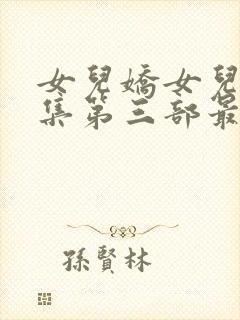 女兒嬌女兒
集第三部最
孫賢林